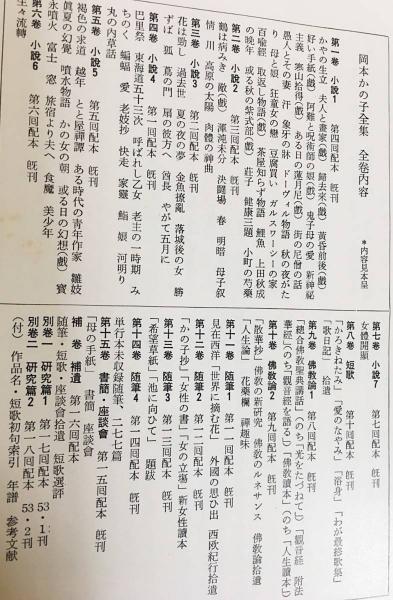 岡本かの子全集 全巻内容
＊内容見本呈
第一巻 小説1 第四回配本 旣刊
かやの生立 夫人と畫家(戲) 歸去來(戲) 黄昏前後(戲)
好い手紙(戲) 阿難と呪術師の娘(戲) 鬼子母の愛 新神祕
主義 寒山拾得(戲) ある日の蓮月尼(戲) 街の尼僧の話
愚人とその妻 汗 象牙の牀 ドーヴィル物語 秋の夜がた
り 母と娘 狂童女の戀 豆腐買い ガルスワーシーの家
百喩經 取返し物語(戲) 茶屋知らず物語 鯉魚 上田秋成
の晩年 或る秋の紫式部(戲) 莊子 健康三題 小町の芍藥
第二巻 小説2 第三回配本 旣刊
鶴は病みき 敵(戲) 渾沌未分 決鬪場 春 明暗 母子叙
情 川 高原の太陽 肉體の神曲
第三巻 小説3 第二回配本 旣刊
花は勁し 過去世 夏の夜の夢 金魚撩亂 落城後の女 勝
ずば 狐 蔦の門 扇の彼方へ 酋長 やがて五月に
第四巻 小説4 第一回配本 旣刊
巴里祭 東海道五十三次 呼ばれし乙女 老主の一時期 み
ちのく 蝙蝠 愛 老妓抄 快走 家靈 鮨 娘 河明り
丸の内草話
第五巻 小説5 第五回配本 旣刊
褐色の求道 越年 とと屋禪譚 ある時代の青年作家 雛妓
眞夏の幻覺 噴水物語 かの女の朝 或る日の幻想(戲) 寶
永噴火 富士 窓 旅宿より夫へ 食魔 美少年
第六巻 小説6 第六回配本 旣刊
生々流轉
第七巻 小説7 第七回配本 旣刊
女體開顯
第八巻 短歌 第十回配本 旣刊
「かろきねたみ」「愛のなやみ」「浴身」「わが最終歌集」
「歌日記」 拾遺
第九巻 佛敎論1 第八回配本 旣刊
「總合佛敎聖典講話」(のち「光をたづねて」)「觀音經 附法
華經」(のち「觀音經を語る」)「佛敎讀本」(のち「人生讀本」)
第十巻 佛敎論2 第九回配本 旣刊
「散華抄」 佛敎の新研究 佛敎のルネサンス 佛敎論拾遺
「人生論」 花藥欄 禪趣味
第十一巻 隨筆1 第一一回配本 旣刊
見在西洋「世界に摘む花」 外國の思ひ出 西欧紀行拾遺
第十二巻 隨筆2 第一二回配本 旣刊
「かの子抄」「女性の書」「女の立場」「新女性讀本」
第十三巻 隨筆3 第一三回配本 旣刊
「希望草紙」「池に向ひて」 題跋
第十四巻 隨筆4 第一四回配本 旣刊
単行本未収録隨筆、二七七篇
第十五巻 書簡・座談會 第一五回配本 旣刊
「母の手紙」 書簡 座談會
補巻 補遺 第一六回配本
隨筆・短歌・座談會拾遺 短歌選評
別巻一 研究篇1 第一七回配本 53・1刊
別巻二 研究篇2 第一八回配本 53・2刊
(付) 作品名・短歌初句索引 年譜 參考文献